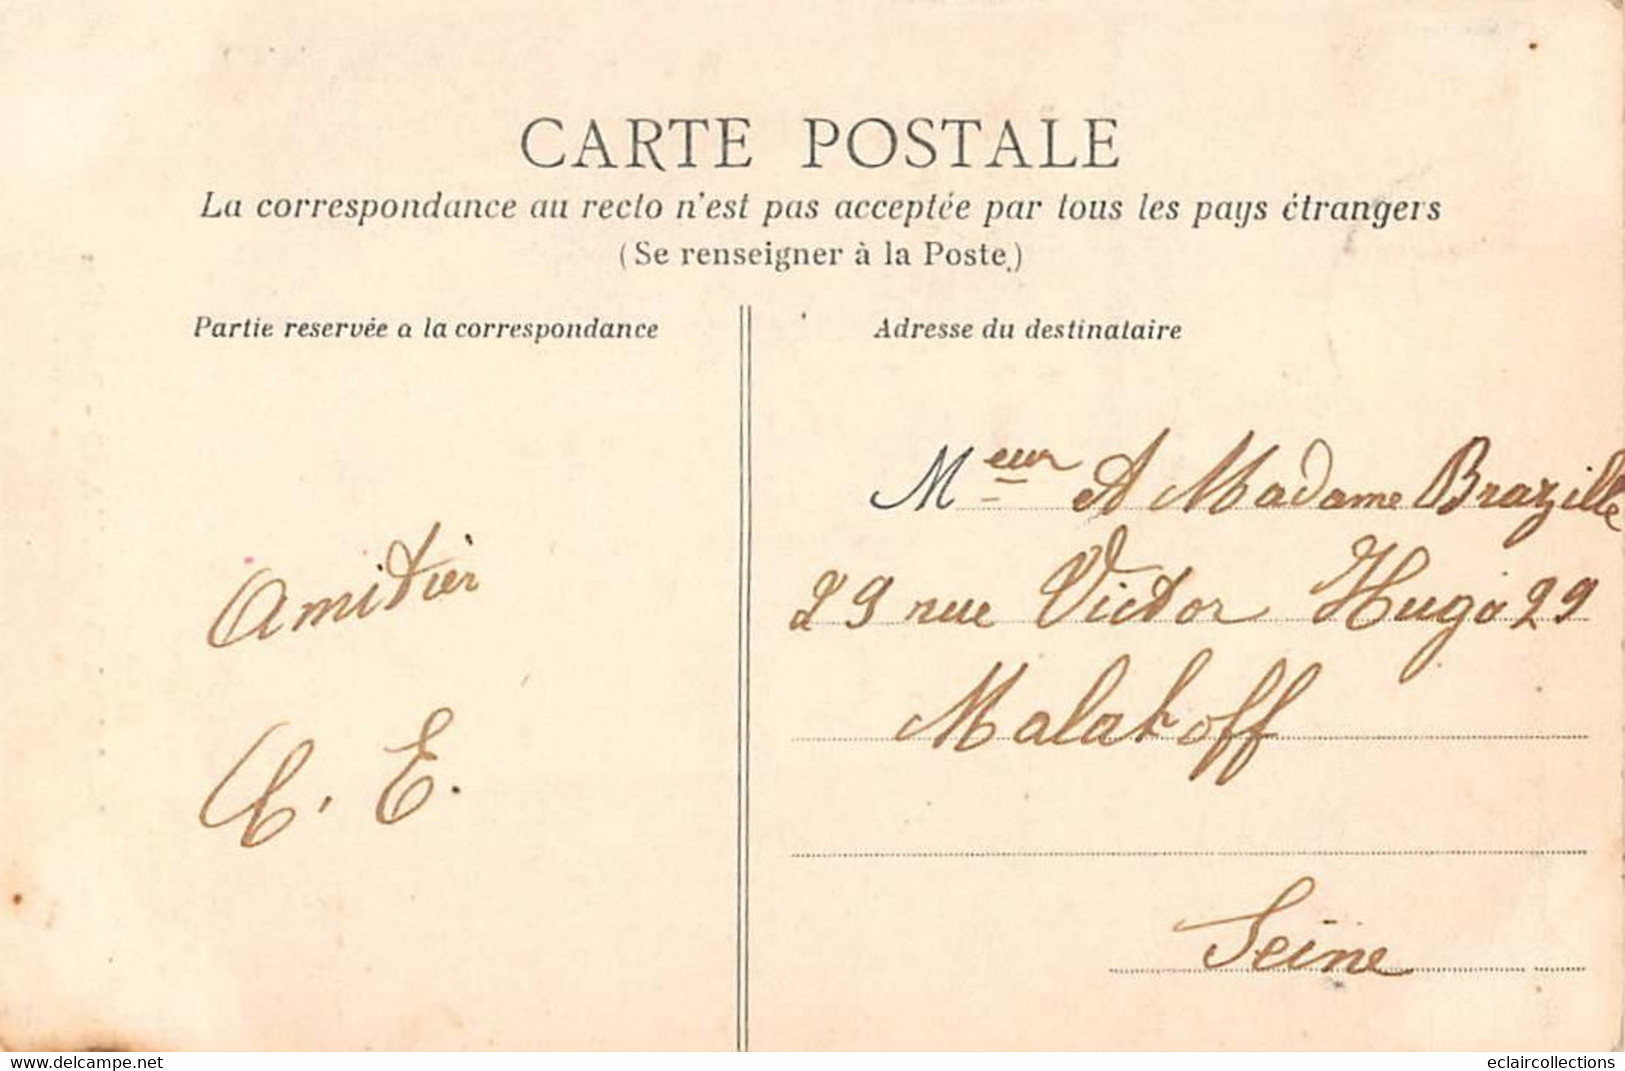 CARTE POSTALE
La correspondance au recto n'est pas acceptée par tous les pays étrangers
(Se renseigner à la Poste.)
Partie reservée a la correspondance
Amitièr
C. E.
Adresse du destinataire
Meur A Madame Brazille
29 rue Victor Hugo 29
Malakoff
Seine
https://www.delcampe.net
eclaircollections